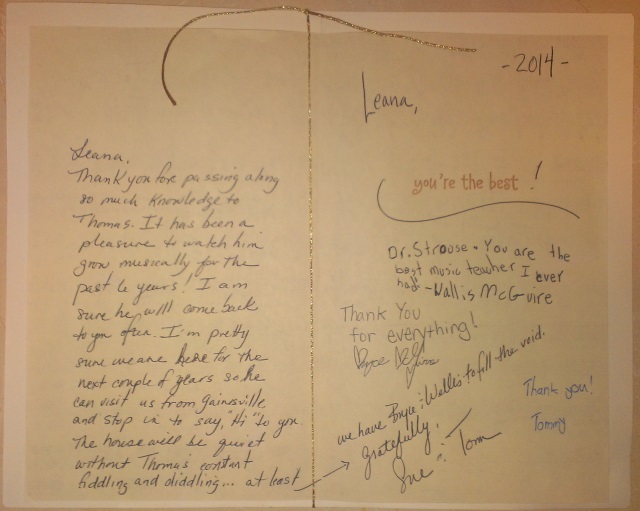 Leana,
Thank you for passing along
so much knowledge to
Thomas. It has been a
pleasure to watch him
grow musically for the
past 6 years! I am
sure he will come back
to you often. I'm pretty
sure we are here for the
next couple of years so he
can visit us from Gainsville
and stop in to say, "Hi" to you.
The house will be quiet
without Thomas constant
fiddling and diddling... at least
-2014-
Leana,
you're the best!
Dr. Strouse - You are the
best music teacher I ever
had! - Wallis McGuire
Thank You
for everything!
Boyce
we have Boyce & Wallis to fill the void.
gratefully,
Sue & Tom
Thank you!
Tommy